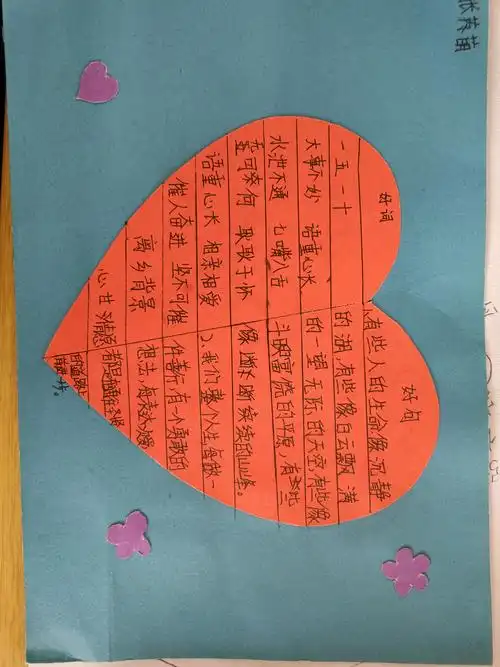 好词
一五一十
大事不妙 语重心长
水泄不通 七嘴八舌
可奈何 耿耿于怀
语重心长 相亲相爱
催人奋进 坚不可摧
离乡背景
心甘情愿
好句
有些人的生命像沉静
的湖,有些像白云飘满
的一望无际的天空,有些像
富饶的平原,有些
像断断续续的山峰。
2、我们整个人生每做一
件善行,有一个勇敢的
想法,每表达